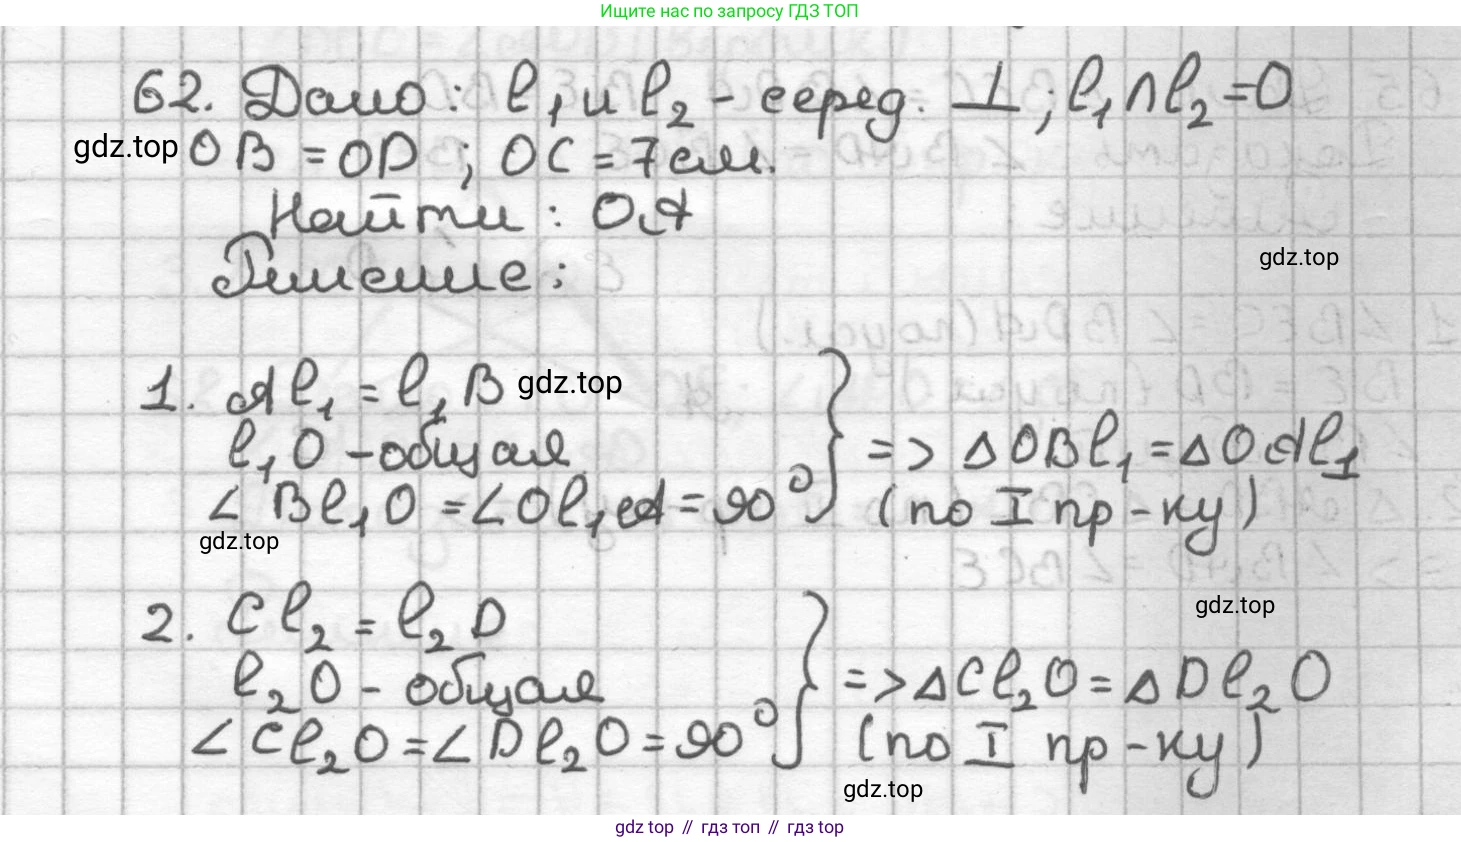 Ищите нас по запросу ГДЗ ТОП
62. Дано: l₁ и l₂ - серед. ⊥; l₁∩l₂=O
gdz.top OB = OD; OC = 7 см.
Найти: OA
gdz.top
Решение:
1. Al₁ = l₁B gdz.top
l₁O - общая
∠Bl₁O = ∠Ol₁A = 90° } => ΔOBl₁ = ΔOAl₁
(по I пр-ку)
gdz.top
gdz.top
2. Cl₂ = l₂D
l₂O - общая
∠Cl₂O = ∠Dl₂O = 90° } => ΔCl₂O = ΔDl₂O
(по I пр-ку)
gdz.top
gdz top // гдз топ // гдз top